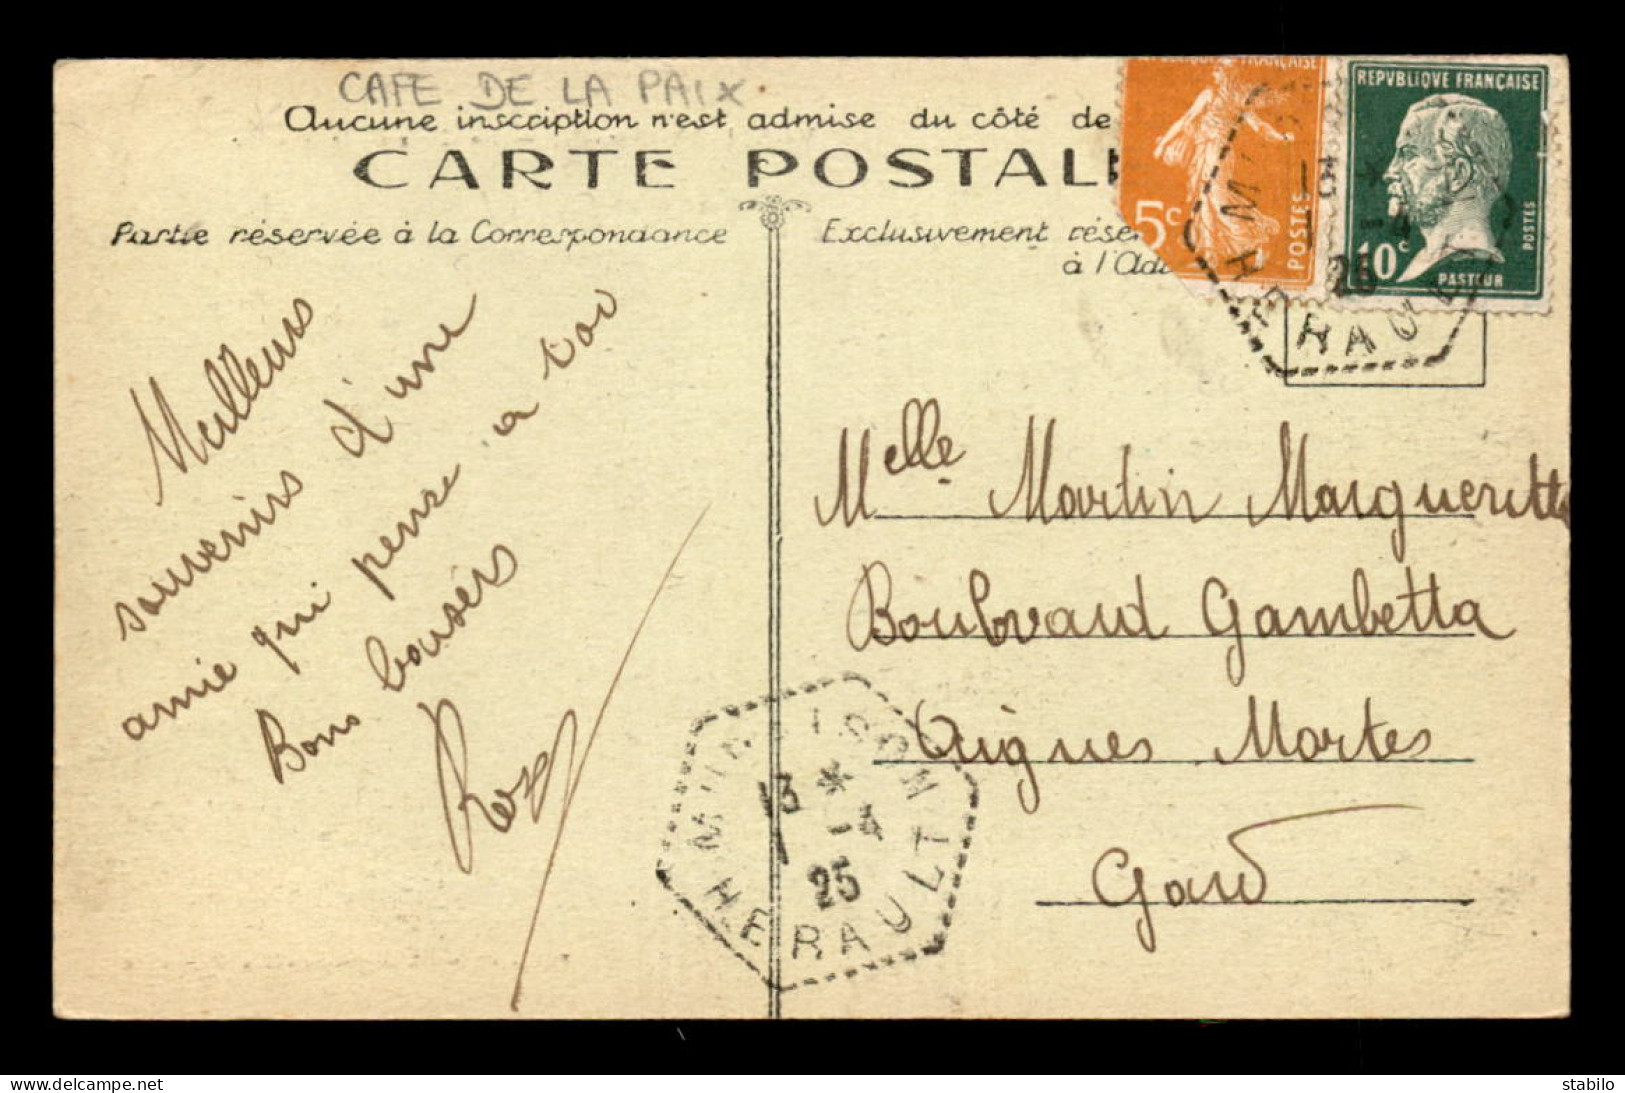 CAFE DE LA PAIX
Aucune inscription n'est admise du côté de
CARTE POSTAL
Partie réservée à la Correspondance
Exclusivement
à l'Ad
REPVBLIQVE FRANÇAISE
5c
POSTES
10c
POSTES
PASTEUR
25
HERAU
Meilleurs
souvenirs d'une
amie qui pense a toi
Bons baisers
Melle Martin Marguerite
Boulevard Gambetta
Aigues Mortes
Gard
13 * 14
1
25
HERAULT
delcampe.net
stabilo